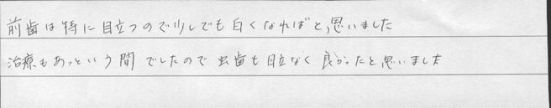 前歯は特に目立つので少しでも白くなればと思いました
治療もあっという間でしたので虫歯も目立なく良かったと思いました